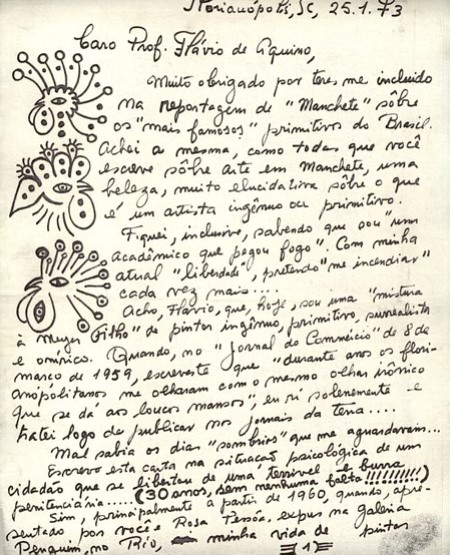 Florianópolis, SC, 25.1.73
Caro Prof. Flávio de Aquino,
Muito obrigado por teres me incluido
na reportagem de "Manchete" sôbre
os "mais famosos" primitivos do Brasil.
Achei a mesma, como todas que você
escreve sôbre arte em Manchete, uma
beleza, muito elucidativa sôbre o que
é um artista ingênuo ou primitivo.
Fiquei, inclusive, sabendo que sou "um
acadêmico que pegou fogo". Com minha
atual "liberdade", pretendo "me incendiar"
cada vez mais....
Acho, Flávio, que, hoje, sou uma "mistura
à Meyer Filho" de pintor ingênuo, primitivo, surrealista
e onírico. Quando, no "Jornal do Comméicio" de 8 de
março de 1959, escreveste que "durante anos os flori-
anópolitanos me olharam com o mesmo olhar irônico
que se dá aos loucos mansos", eu ri solenemente e
tratei logo de publicar nos jornais da terra....
Mal sabia os dias "sombrios" que me aguardavam...
Escrevo esta carta na situação psicológica de um
cidadão que se libertou de uma terrível e burra
penitenciária..... (30 anos, sem nenhuma falta!!!!!!!!!!)
Sim, principalmente a partir de 1960, quando, apre-
sentado por você e Rosa Pessôa, expus na galeria
Penguim, no Rio, minha vida de pintor
1